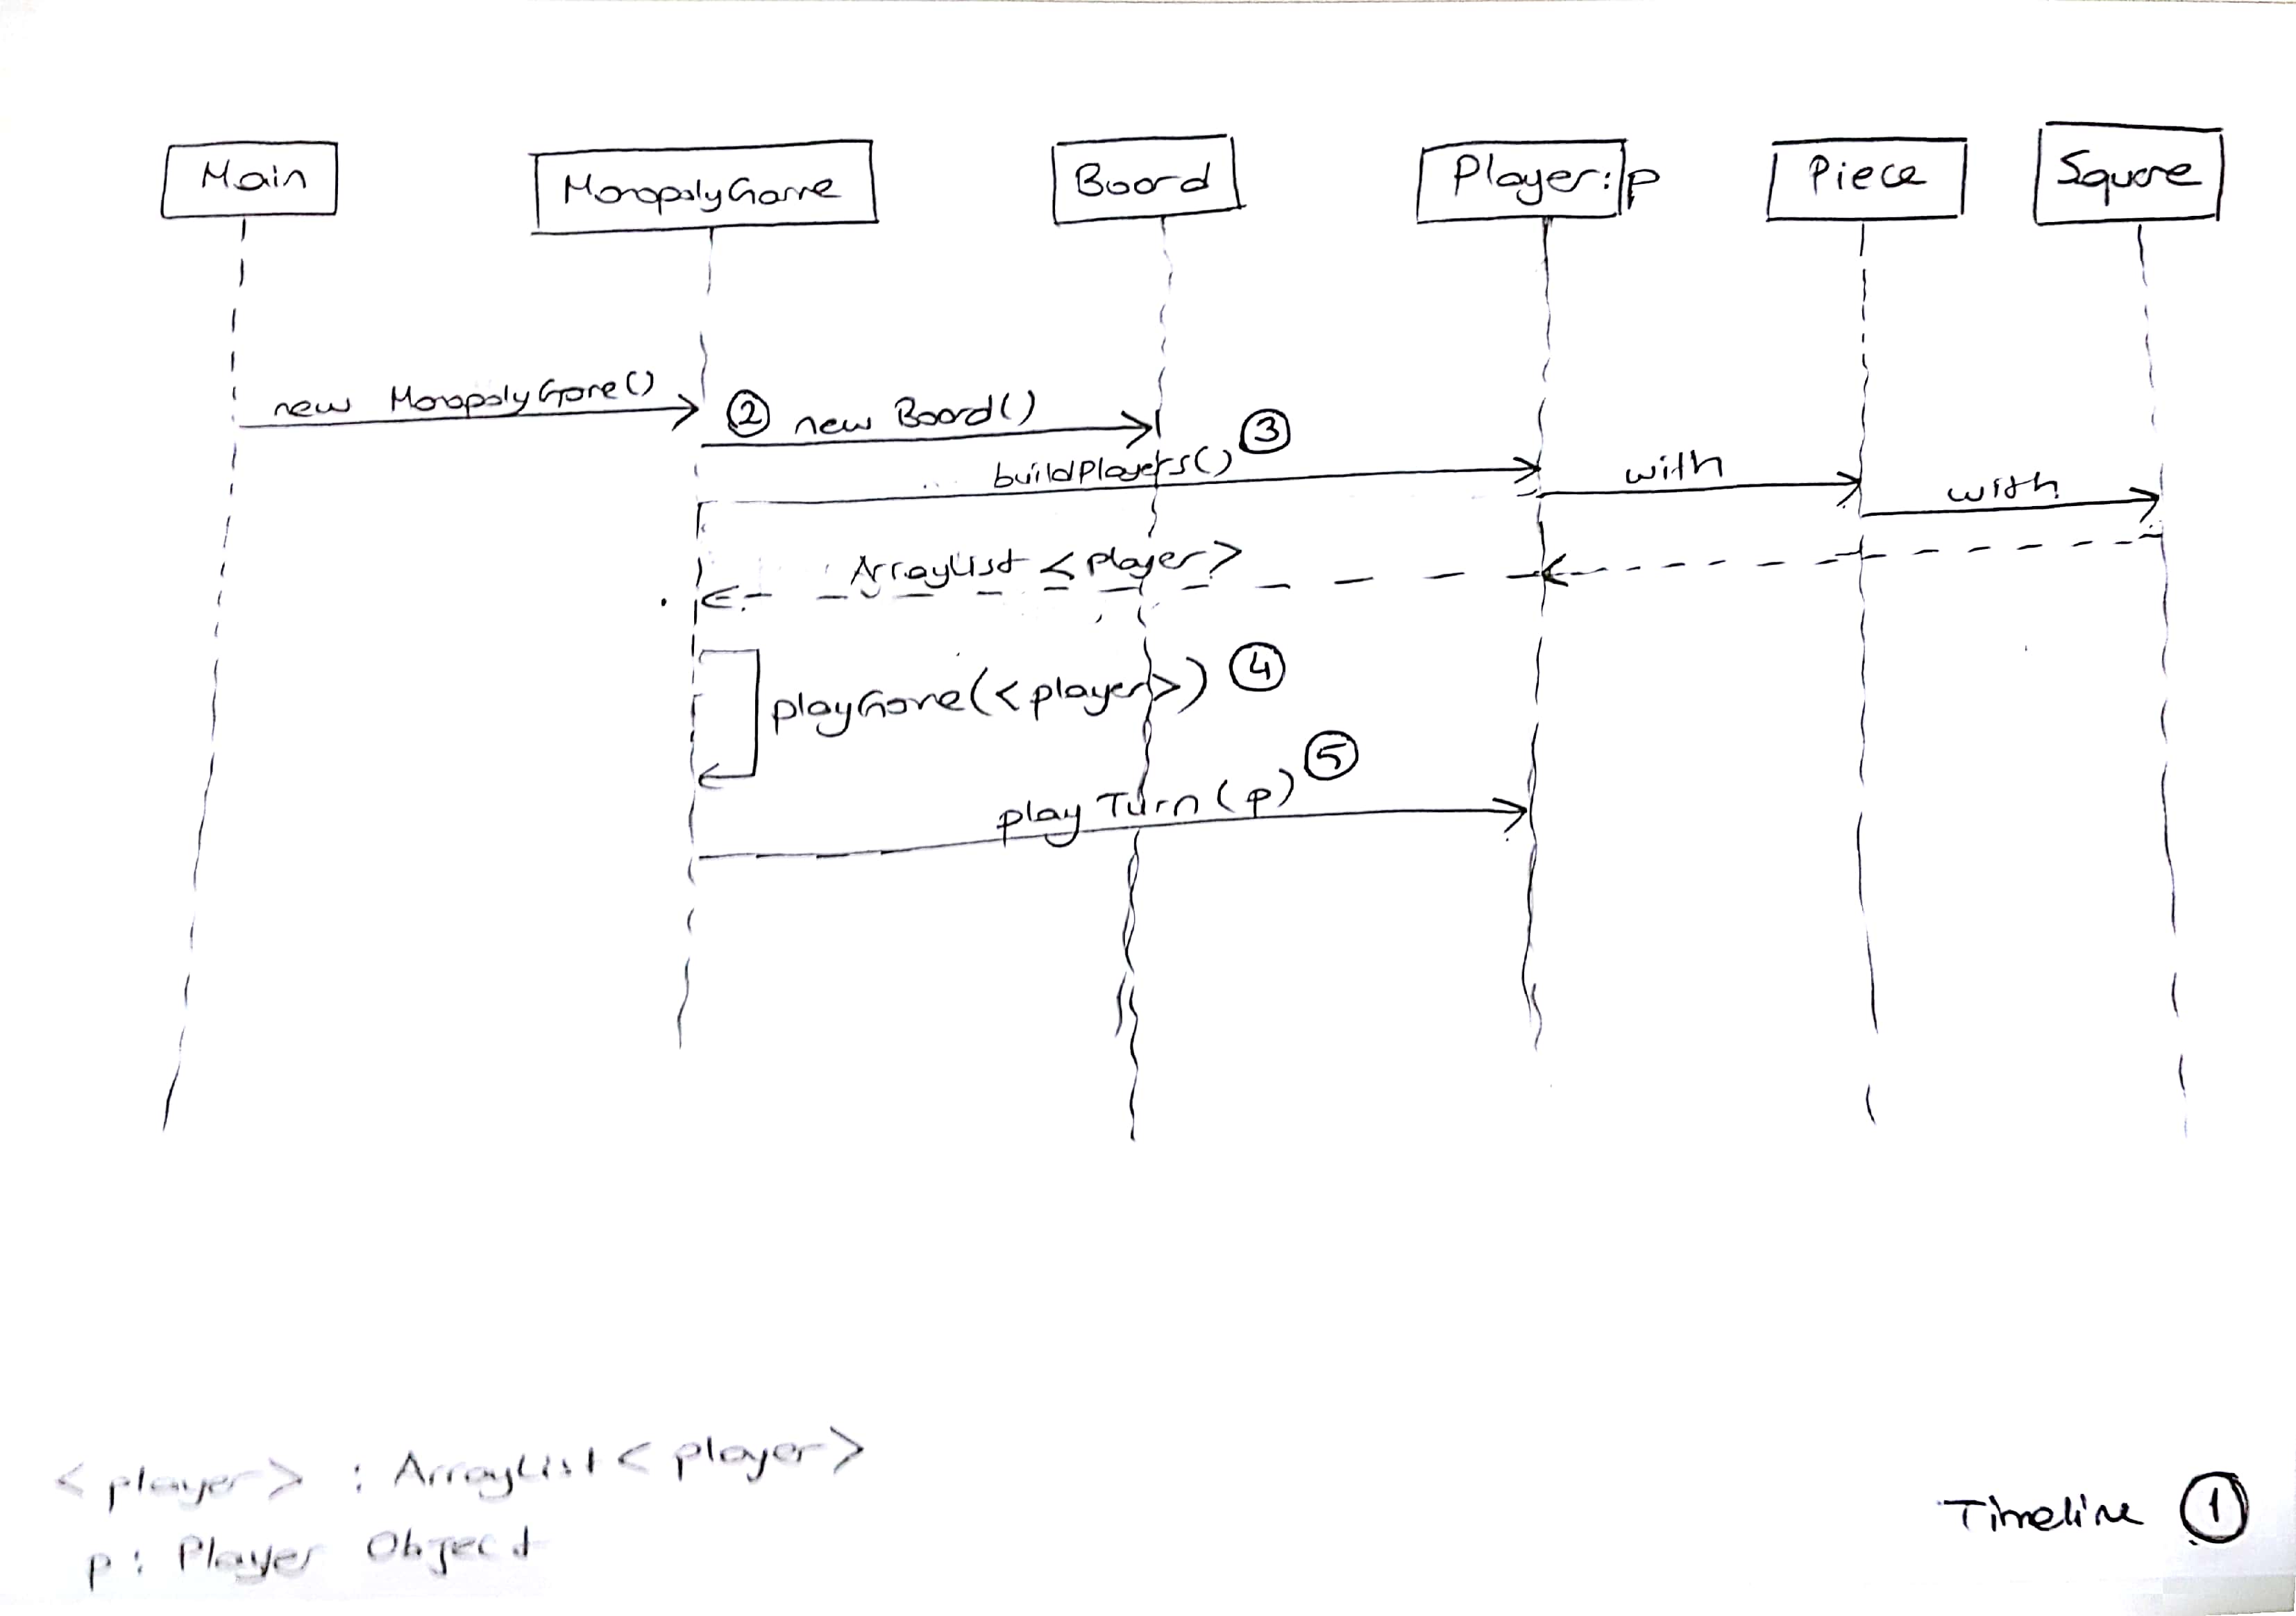 Main
MonopolyGame
Board
Player:p
Piece
Square
new MonopolyGame()
② new Board()
buildPlayers() ③
with
with
ArrayList <player>
playGame(<player>) ④
playTurn(p) ⑤
<player> : ArrayList<player>
p : Player Object
Timeline ①